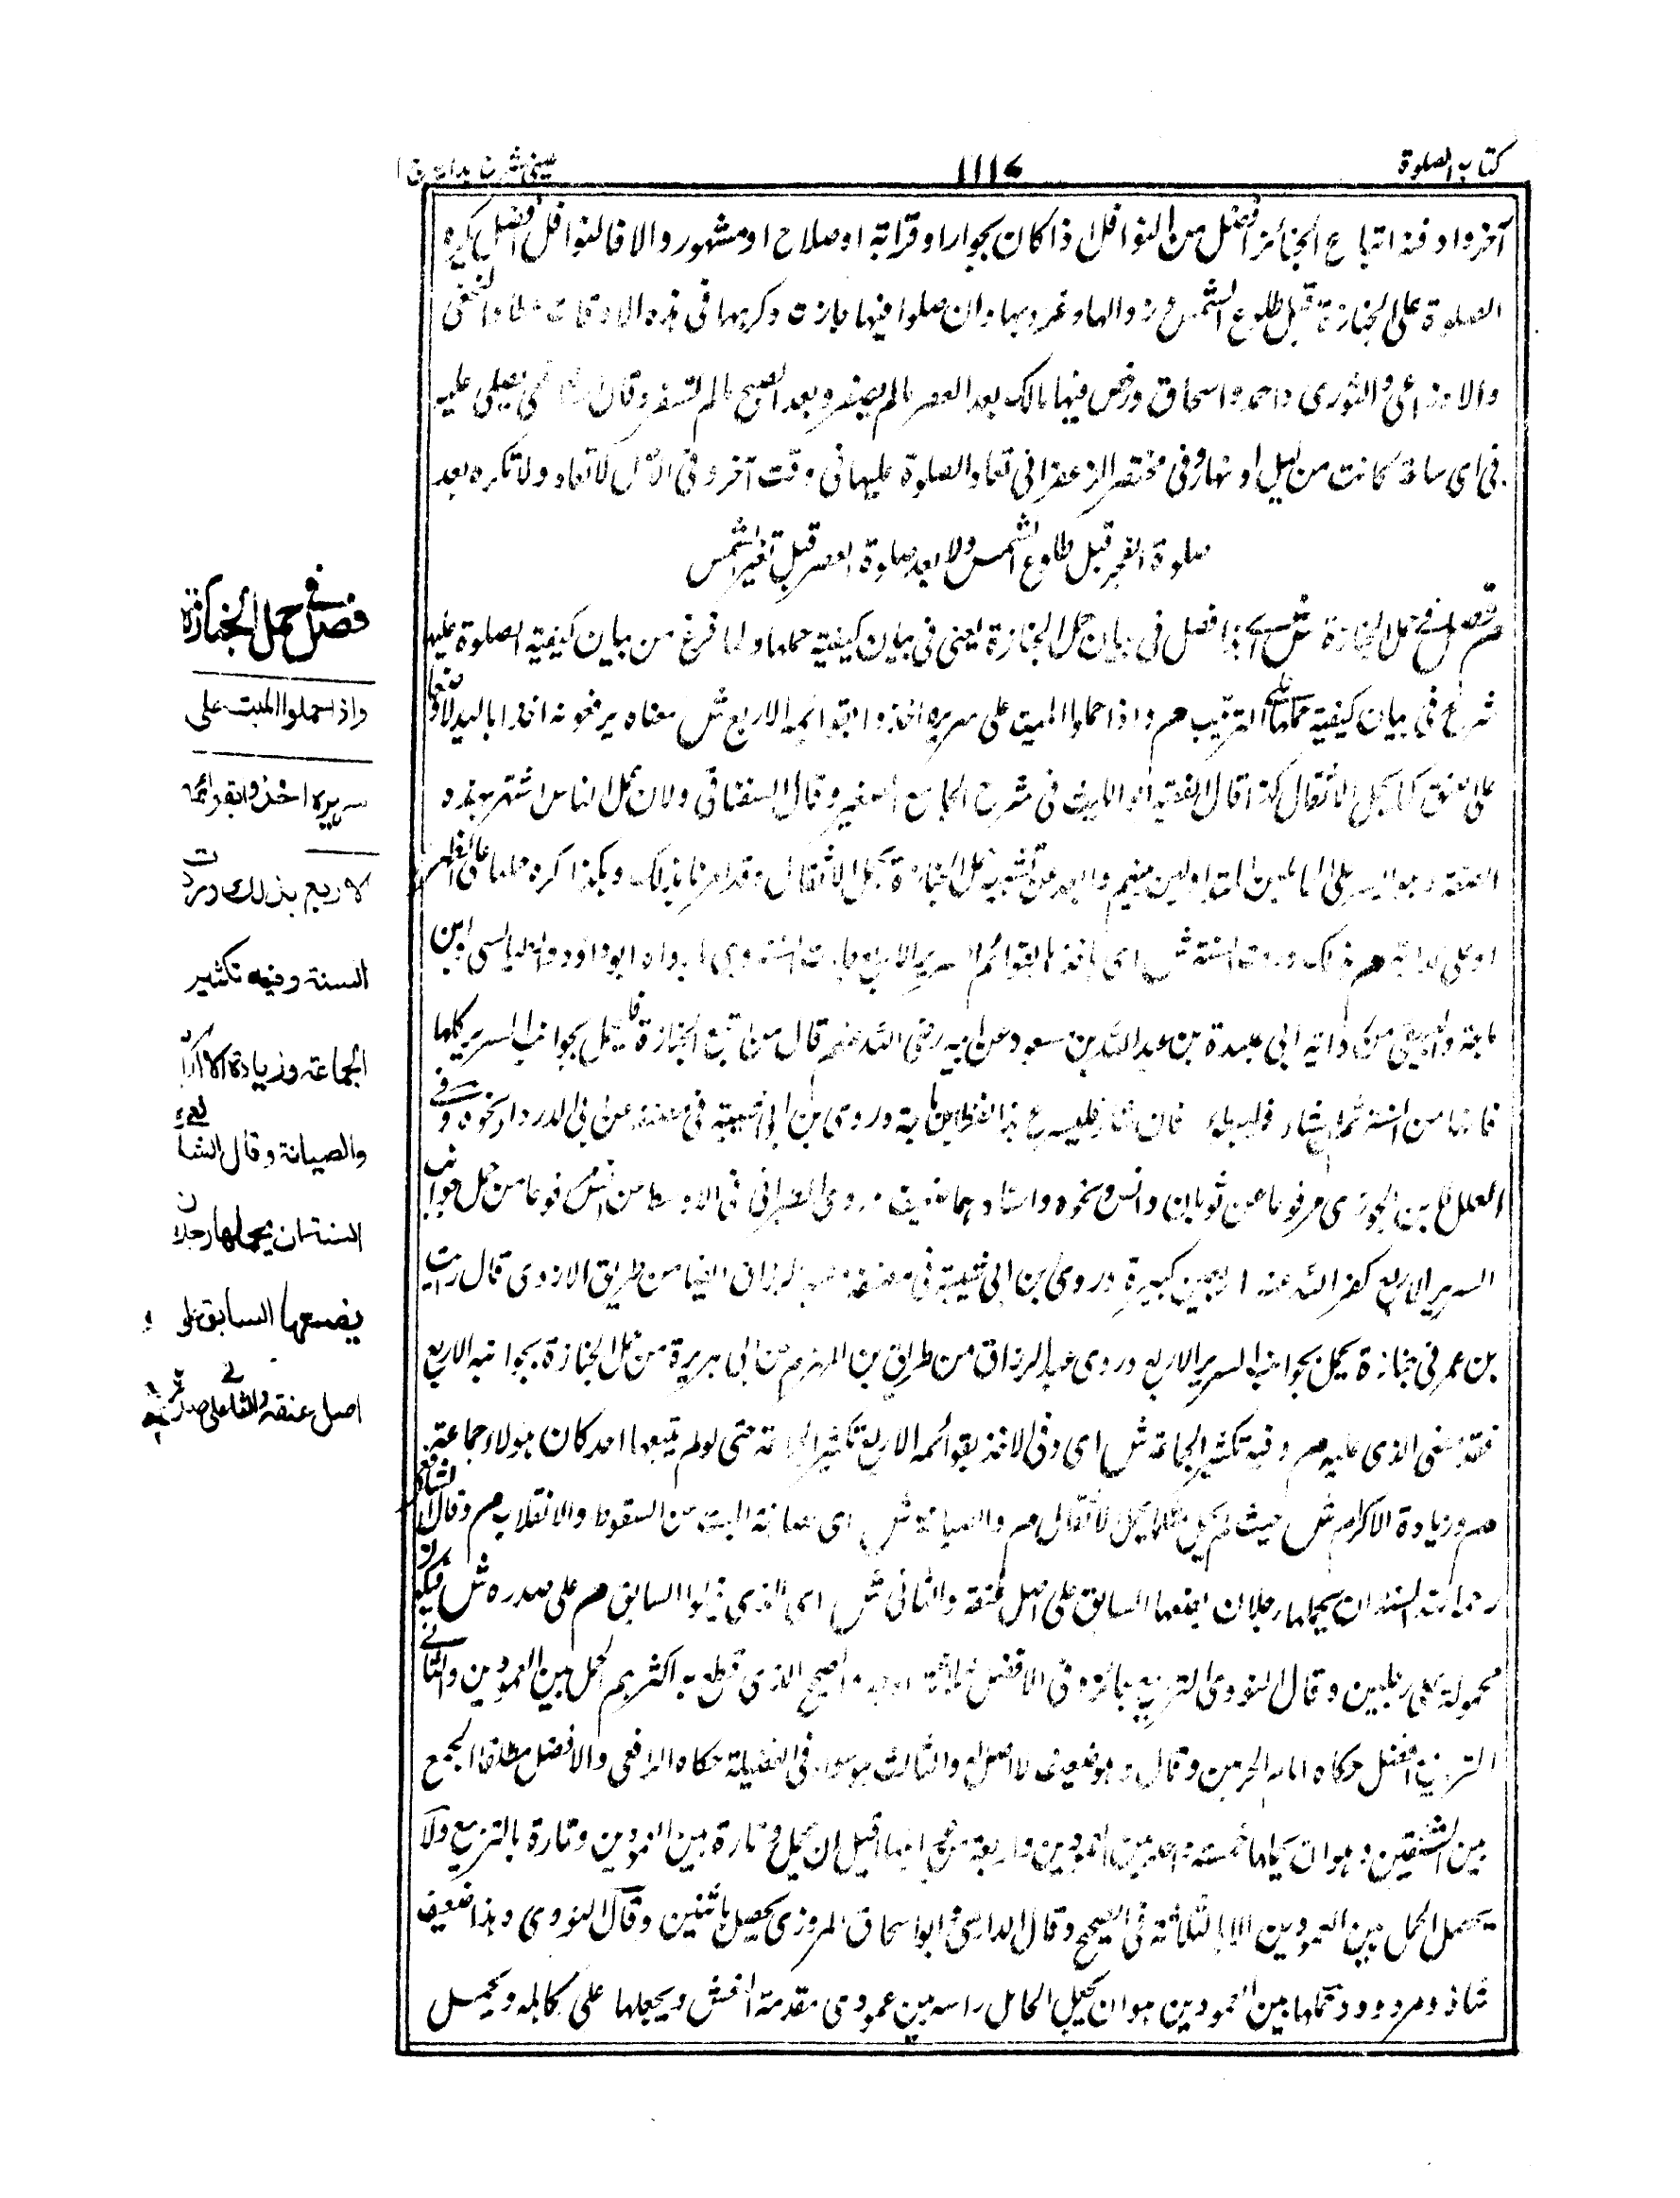 كتاب الصلوة
١١١٤
عينى شرح هداية ج ١
آخر وادفنه اتباع الجنائز افضل من النوافل اذا كان بجوار او قرابة او صلاح او مشهور والا فالنوافل افضل يكره
الصلوة على الجنازة قبل طلوع الشمس و زوالها وغروبها وان صلوا فيها جازت وكرهها فى هذه الاوقات عطاء والنخعى
والاوزاعى والثورى واحمد واسحاق ورخص فيها مالك بعد العصر مالم يصفر وبعد الصبح مالم تسفر وقال الشافعى يصلى عليه
فى اى ساعة كانت من ليل او نهار وفى مختصر الزعفرانى تعاد الصلوة عليها فى وقت آخر وفى الاصل لا تعاد ولا تكره بعد
صلوة الفجر قبل طلوع الشمس ولا بعد صلوة العصر قبل تغير الشمس
م فصل فى حمل الجنازة ش اى هذا فصل فى بيان حمل الجنازة يعنى فى بيان كيفية حملها ولما فرغ من بيان كيفية الصلوة عليها
شرع فى بيان كيفية حملها الترتيب م واذا حملوا الميت على سريره اخذوا بقوائمه الاربع ش معناه يرفعونه اخذا باليد لا وضعا
على العنق كما يحمل الاثقال كذا قال الفقيه ابو الليث فى شرح الجامع الصغير وقال السغناقى ولان عمل الناس اشتهر بهذه
الصفة وهو ايسر على الحاملين المتداولين بينهم وابعد عن تشبيه حمل الجنازة بحمل الاثقال وقد امرنا بذلك ولهذا كره حملها على الظهر
او على الدابة م بذلك وردت السنة ش اى باخذ القوائم السرير الاربع جاءت السنة وهى ما رواه ابو داود والطيالسى وابن
ماجة والبيهقى من رواية ابى عبيدة بن عبد الله بن مسعود عن ابيه رضى الله عنهم قال من اتبع الجنازة فليحمل بجوانب السرير كلها
فانها من السنة ثم ان شاء فليطوع فان شاء فليدع هذا لفظ ابن ماجة وروى بن ابى شيبة فى مصنفه عن ابى الدرداء نحوه وفى
العلل لابن الجوزى مرفوعا عن ثوبان وانس نحوه واسنادهما ضعيف وروى الطبرانى فى الاوسط عن انس مرفوعا من حمل جوانب
السرير الاربع كفر الله عنه اربعين كبيرة وروى بن ابى شيبة فى مصنفه وعبد الرزاق ايضا من طريق الازدى قال رايت
بن عمر فى جنازة يحمل بجوانب السرير الاربع وروى عبد الرزاق من طريق بن المهزم عن ابى هريرة من حمل الجنازة بجوانبه الاربع
فقد قضى الذى عليه م وفيه تكثير الجماعة ش اى وفى الاخذ بقوائمه الاربع تكثير الجماعة حتى لو لم يتبعها احد كان هولاء جماعة
م وزيادة الاكرام ش حيث لم يحمل كما يحمل الاثقال م والصيانة ش اى صيانة الميت من السقوط والانقلاب م وقال الشافعى
رحمه الله السنة ان يحملها رجلان يضعها السابق على اصل عنقه والثانى ش اى الذى يتلوا السابق م على صدره ش فيكون
محمولة على رجلين وقال النووى التربيع جائز وفى الافضل ثلاثة اوجه الصحيح الذى قطع به اكثرهم الحمل بين العمودين والثانى
التربيع افضل حكاه امام الحرمين وقال وهو ضعيف لا اصل له والثالث هو سواء فى الفضيلة حكاه الرافعى والافضل مطلقا الجمع
بين الشقين وهو ان يحملها خمسة احدهم بين العمودين واربعة من جوانبها قيل ان يحمل تارة بين العمودين وتارة بالتربيع ولا
يحصل الحمل بين العمودين الا بالثلاثة فى الصحيح وقال الدارمى وابو اسحاق المروزى يحصل باثنين وقال النووى وهذا ضعيف
شاذ ومردود وحملها بين العمودين هو ان يجعل الحامل راسه بين عمودى مقدمة النعش ويجعلها على كاهله ويحمل
فصل فى حمل الجنازة
واذا حملوا الميت على
سريره اخذوا بقوائمه
الاربع بذلك وردت
السنة وفيه تكثير
الجماعة وزيادة الاكرام
والصيانة وقال الشافعى
السنة ان يحملها رجلان
يضعها السابق على
اصل عنقه والثانى على صدره